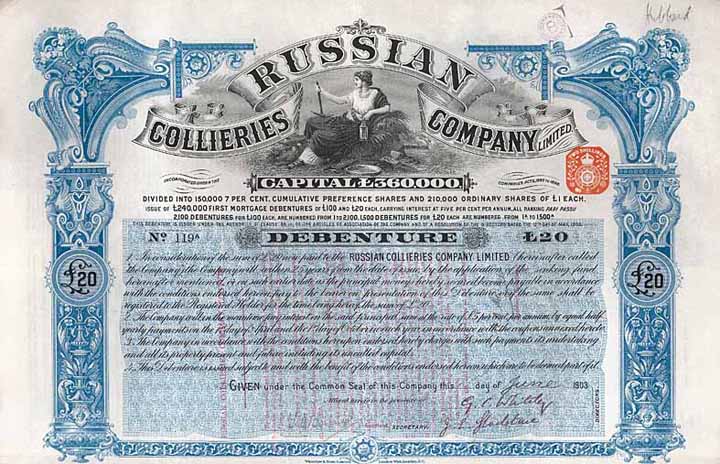 Hibberd
RUSSIAN
COLLIERIES COMPANY LIMITED.
TWO SHILLINGS
INCORPORATED UNDER THE COMPANIES ACTS, 1862 TO 1898.
CAPITAL £360,000.
DIVIDED INTO 150,000 7 PER CENT. CUMULATIVE PREFERENCE SHARES AND 210,000 ORDINARY SHARES OF £1 EACH.
ISSUE OF £240,000 FIRST MORTGAGE DEBENTURES OF £100 AND £20 EACH, CARRYING INTEREST AT FIVE PER CENT PER ANNUM, ALL RANKING PARI PASSU
2,100 DEBENTURES FOR £100 EACH, ARE NUMBERED FROM 1 TO 2,100. 1,500 DEBENTURES FOR £20 EACH ARE NUMBERED FROM 1A TO 1500A
THIS DEBENTURE IS ISSUED UNDER THE AUTHORITY OF CLAUSE OF THE ARTICLES OF ASSOCIATION OF THE COMPANY AND OF A RESOLUTION OF THE DIRECTORS DATED THE DAY OF MAY, 1903.
No. 119A DEBENTURE £20
£20
£20
1. In consideration of the sum of £20 now paid to the RUSSIAN COLLIERIES COMPANY LIMITED (hereinafter called
The Company) the Company will within 25 years from the date of issue by the application of the sinking fund
hereinafter mentioned, or on such earlier date as the principal money hereby secured become payable in accordance
with the conditions endorsed hereon, pay to the bearer on presentation of this Debenture, or if the same shall be
registered, to the Registered Holder for the time being hereof, the sum of £20.
2. The Company will in the meantime pay interest on the said principal sum at the rate of £5 per cent. per annum, by equal half
yearly payments on the 1st day of April and the 1st day of October in each year in accordance with the coupons annexed hereto.
3. The Company in accordance with the conditions hereupon endorsed hereby charges with such payments its undertaking
and all its property present and future including its uncalled capital.
4. This Debenture is issued subject to and with the benefit of the conditions endorsed hereon which are to be deemed part of it.
GIVEN under the Common Seal of this Company this day of June 1903
Affixed hereto in the presence of
SECRETARY.
DIRECTORS.